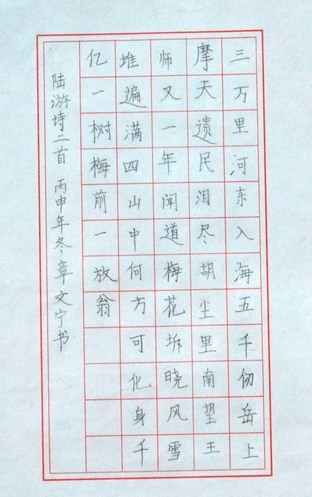 三万里河东入海五千仞岳上
摩天遗民泪尽胡尘里南望王
师又一年闻道梅花坼晓风雪
堆遍满四山中何方可化身千
亿一树梅前一放翁
陆游诗二首 丙申年冬章文宁书